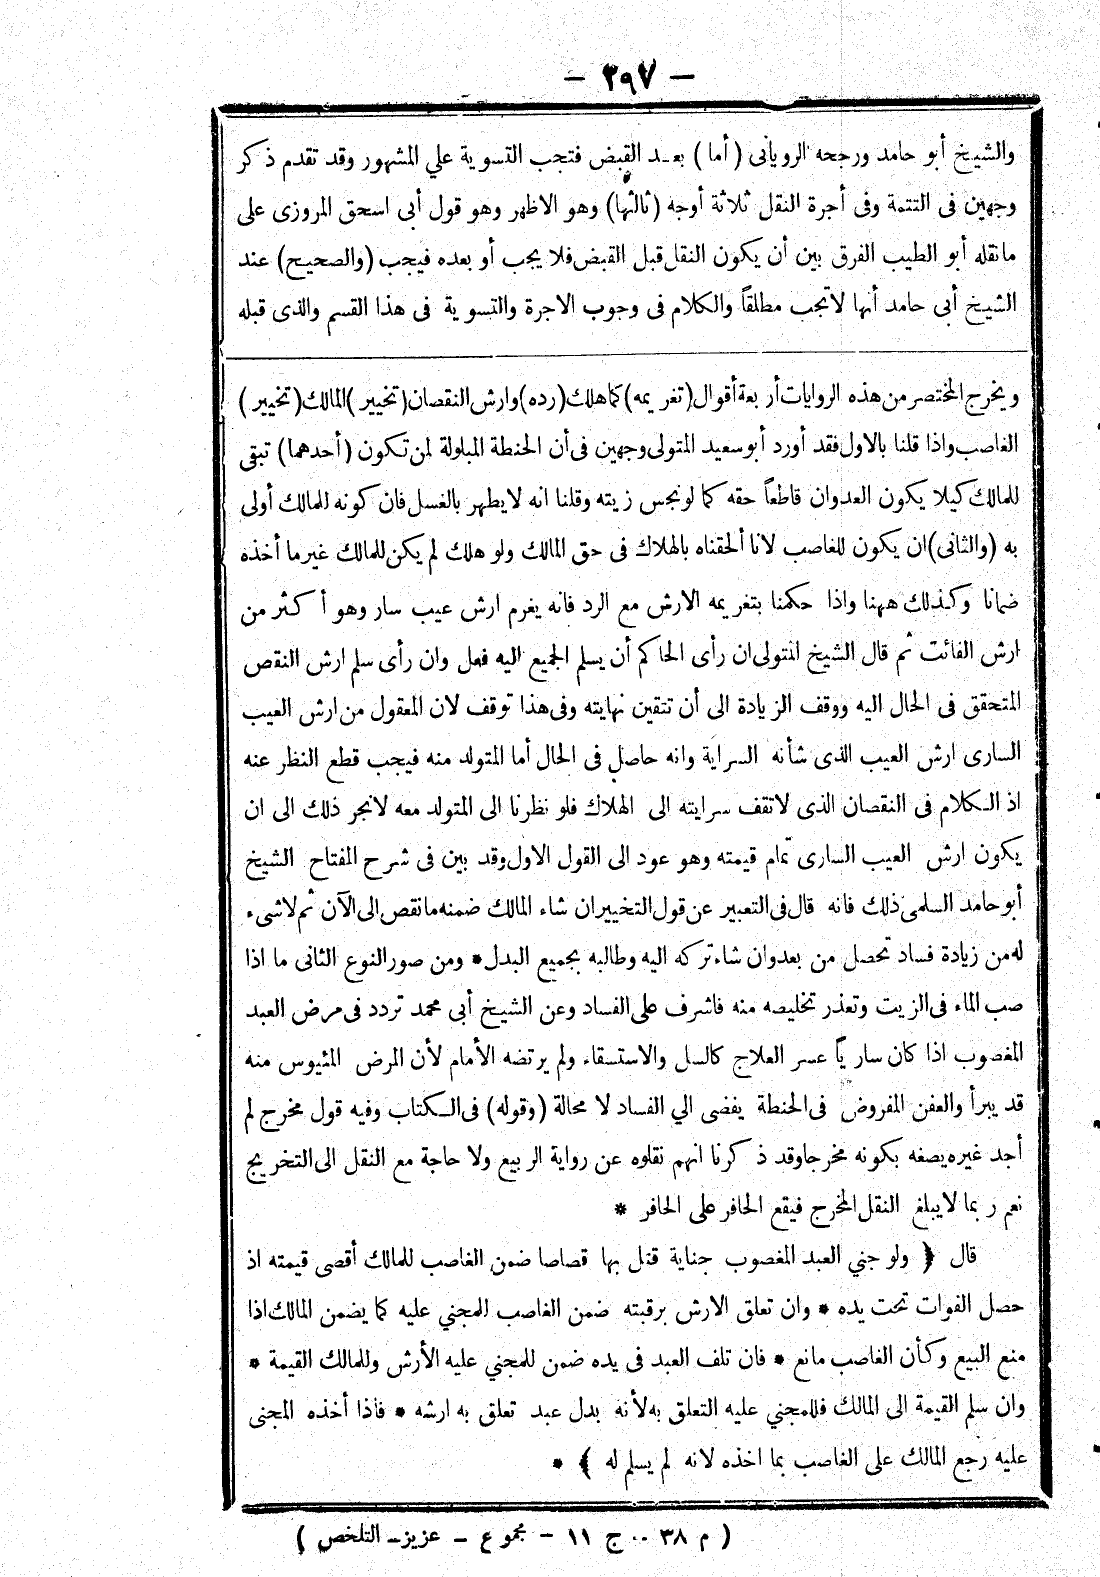 — ٢٩٧ —
والشيخ أبو حامد ورجحه الرويانى (أما) بعد القبض فتجب التسوية علي المشهور وقد تقدم ذكر
وجهين فى التتمة وفى أجرة النقل ثلاثة أوجه (ثالثها) وهو الاظهر وهو قول أبى اسحق المروزى على
مانقله أبو الطيب الفرق بين أن يكون النقل قبل القبض فلا يجب أو بعده فيجب (والصحيح) عند
الشيخ أبى حامد أنها لاتجب مطلقاً والكلام فى وجوب الاجرة والتسوية فى هذا القسم والذى قبله
ويخرج المختصر من هذه الروايات أربعة أقوال (تغريمه) كما هلك (رده) وارش النقصان (تخيير) المالك (تخيير)
الغاصب واذا قلنا بالاول فقد أورد أبو سعيد المتولى وجهين فى أن الحنطة المبلولة لمن تكون (أحدهما) تبقى
للمالك كيلا يكون العدوان قاطعاً حقه كما لو نجس زيته وقلنا انه لا يطهر بالغسل فان كونه للمالك أولى
به (والثانى) ان يكون للغاصب لانا ألحقناه بالهلاك فى حق المالك ولو هلك لم يكن للمالك غير ما أخذه
ضمانا وكذلك ههنا واذا حكمنا بتغريمه الارش مع الرد فانه يغرم ارش عيب سار وهو أكثر من
ارش الفائت ثم قال الشيخ المتولى ان رأى الحاكم أن يسلم الجميع اليه فعل وان رأى سلم ارش النقص
المتحقق فى الحال اليه ووقف الزيادة الى أن تتقين نهايته وفى هذا توقف لان المعقول من ارش العيب
السارى ارش العيب الذى شأنه السراية وانه حاصل فى الحال أما المتولد منه فيجب قطع النظر عنه
اذ الكلام فى النقصان الذى لاتقف سرايته الى الهلاك فلو نظرنا الى المتولد معه لانجر ذلك الى ان
يكون ارش العيب السارى تمام قيمته وهو عود الى القول الاول وقد بين فى شرح المفتاح الشيخ
أبو حامد السلمى ذلك فانه قال فى التعبير عن قول التخيير ان شاء المالك ضمنه مانقص الى الآن ثم لاشىء
له من زيادة فساد تحصل من بعد وان شاء تركه اليه وطالبه بجميع البدل * ومن صور النوع الثانى ما اذا
صب الماء فى الزيت وتعذر تخليصه منه فاشرف على الفساد وعن الشيخ أبى محمد تردد فى مرض العبد
المغصوب اذا كان سارياً عسر العلاج كالسل والاستسقاء ولم يرتضه الأمام لأن المرض المئيوس منه
قد يبرأ والعفن المفروض فى الحنطة يفضى الي الفساد لا محالة (وقوله) فى الكتاب وفيه قول مخرج لم
أجد غيره يصفه بكونه مخرجا وقد ذكرنا انهم نقلوه عن رواية الربيع ولا حاجة مع النقل الى التخريج
نعم ربما لايبلغ النقل المخرج فيقع الحافر على الحافر *
قال ﴿ ولو جني العبد المغصوب جناية قتل بها قصاصا ضمن الغاصب للمالك أقصى قيمته اذ
حصل الفوات تحت يده * وان تعلق الارش برقبته ضمن الغاصب للمجني عليه كما يضمن المالك اذا
منع البيع وكأن الغاصب مانع * فان تلف العبد فى يده ضمن للمجني عليه الأرش وللمالك القيمة *
وان سلم القيمة الى المالك فللمجني عليه التعلق به لأنه بدل عبد تعلق به ارشه * فأذا أخذه المجنى
عليه رجع المالك على الغاصب بما اخذه لانه لم يسلم له ﴾ *
( م ٣٨ .. ج ١١ - مجموع - عزيز - التلخص )